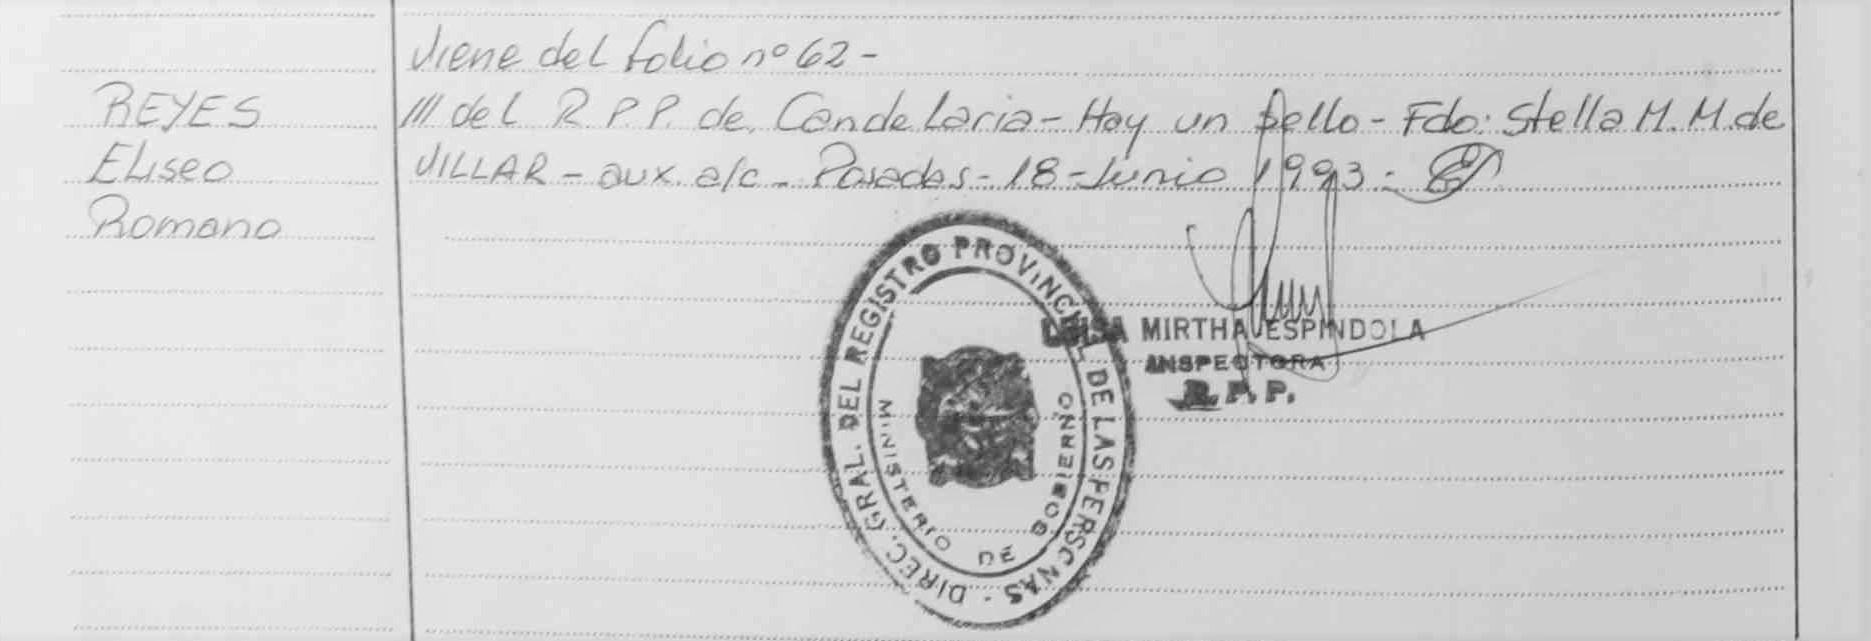 REYES
Eliseo
Romano
Viene del folio nº 62 -
/// del R.P.P. de Candelaria - Hay un sello - Fdo: Stella M. M. de
VILLAR - aux. a/c - Posadas - 18 - Junio 1993 -
DIREC. GRAL. DEL REGISTRO PROVINCIAL DE LAS PERSONAS -
MINISTERIO DE GOBIERNO
LUISA MIRTHA ESPINDOLA
INSPECTORA
R. P. P.